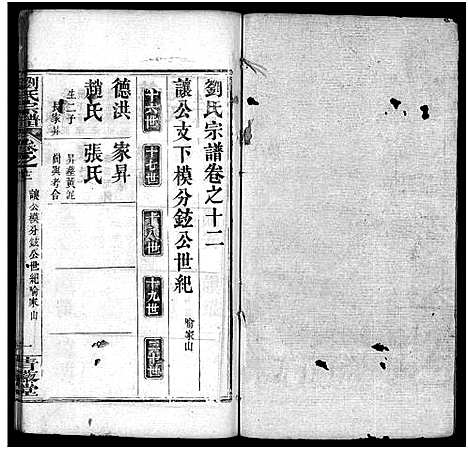 劉氏宗譜卷之十二
讓公支下模分鉉公世紀 喻家山
十六世
十七世
十八世
十九世
二十世
德洪
趙氏
生二子
長家昇
家昇
張氏
劉氏宗譜
卷之十二
讓公模分鉉公世紀喻家山
一